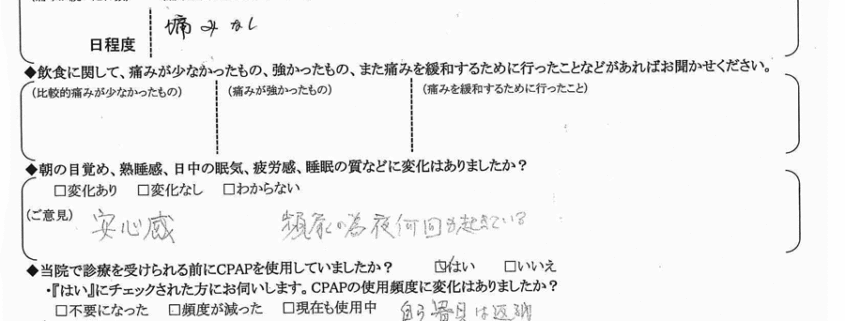 痛みなし
日程度
◆飲食に関して、痛みが少なかったもの、強かったもの、また痛みを緩和するために行ったことなどがあればお聞かせください。
(比較的痛みが少なかったもの) (痛みが強かったもの) (痛みを緩和するために行ったこと)
◆朝の目覚め、熟睡感、日中の眠気、疲労感、睡眠の質などに変化はありましたか?
□変化あり □変化なし □わからない
(ご意見) 安心感 頻尿の為夜何回も起きている
◆当院で診療を受けられる前にCPAPを使用していましたか? ☑はい □いいえ
・『はい』にチェックされた方にお伺いします。CPAPの使用頻度に変化はありましたか?
□不要になった □頻度が減った □現在も使用中 器具は返却